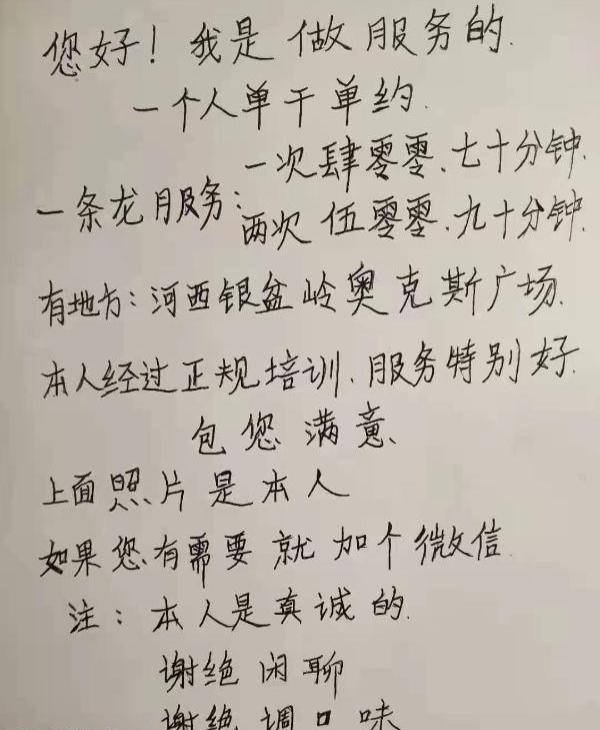 您好！我是做服务的.
一个人单干单约.
一次肆零零、七十分钟.
一条龙服务：
两次伍零零、九十分钟.
有地方：河西银盆岭奥克斯广场.
本人经过正规培训、服务特别好.
包您满意、
上面照片是本人
如果您有需要就加个微信.
注：本人是真诚的.
谢绝闲聊
谢绝调口味